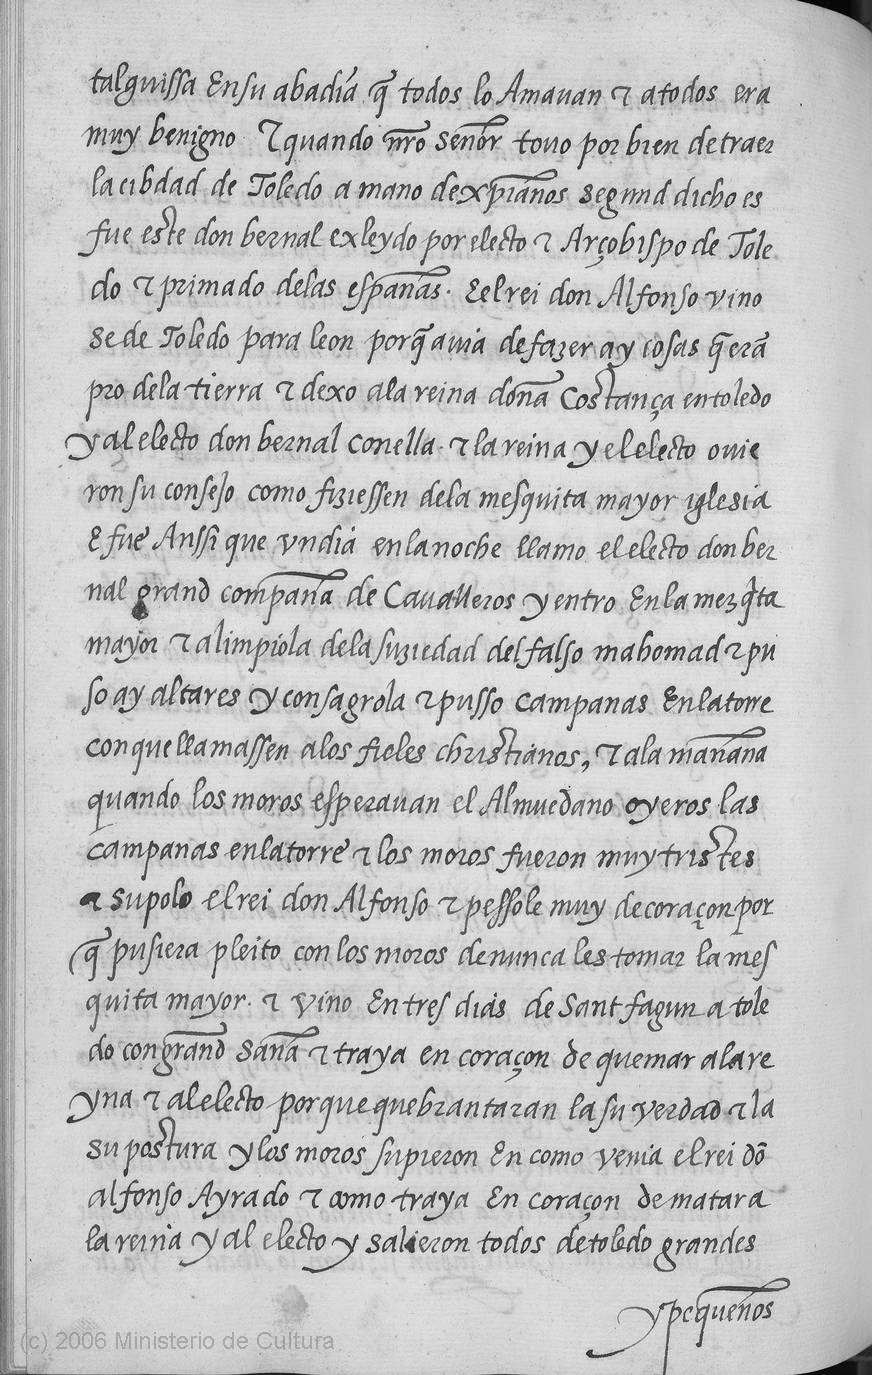 talguissa En su abadia q̃ todos lo Amauan τ a todos era
muy benigno τ quando nr̃o señor touo por bien de traer
la cibdad de Toledo a mano de xp̃ianos segund dicho es
fue este don bernal exleydo por electo τ Arçobispo de Tole
do τ primado delas españas. E el rei don Alfonso vino
se de Toledo para leon porq̃ auia de fazer ay cosas q̃ erã
pro dela tierra τ dexo ala reina doña Costança en toledo
y al electo don bernal con ella. τ la reina y el electo ouie
ron su consejo como fiziessen dela mesquita mayor iglesia
E fue Anssi que vn dia en la noche llamo el electo don ber
nal grand compaña de Caualleros y entro En la mezq̃ta
mayor τ alimpiola dela suziedad del falso mahomad τ pu
so ay altares y consagrola τ pusso campanas En la torre
con que llamassen alos fieles christianos, τ ala mañana
quando los moros esperauan el Almuedano oyeros las
campanas en la torre τ los moros fueron muy tristes
τ supolo el rei don Alfonso τ pessole muy de coraçon por
q̃ pusiera pleito con los moros de nunca les tomar la mes
quita mayor. τ vino En tres dias de Sant fagun a tole
do con grand saña τ traya en coraçon de quemar ala re
yna τ al electo porque quebrantaran la su verdad τ la
su postura y los moros supieron En como venia el rei dõ
alfonso Ayrado τ como traya En coraçon de matar a
la reina y al electo y salieron todos de toledo grandes
y pequeños
(c) 2006 Ministerio de Cultura